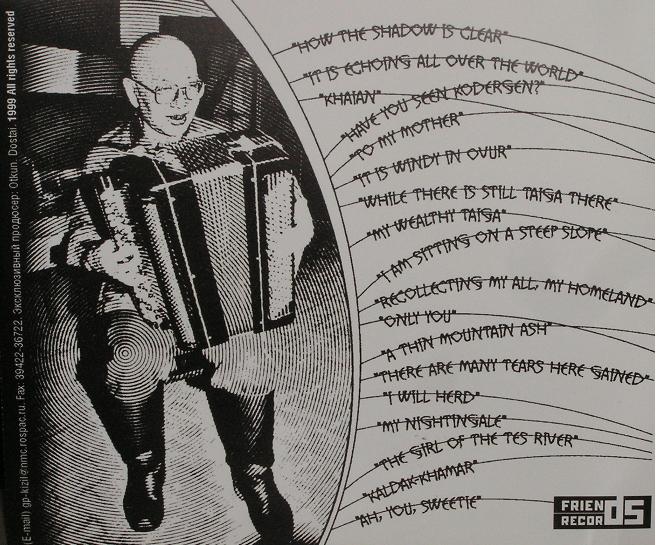 "HOW THE SHADOW IS CLEAR"
"IT IS ECHOING ALL OVER THE WORLD"
"KHAIAN"
"HAVE YOU SEEN KODERGEN?"
"TO MY MOTHER"
"IT IS WINDY IN OVUR"
"WHILE THERE IS STILL TAIGA THERE"
"MY WEALTHY TAIGA"
"I AM SITTING ON A STEEP SLOPE"
"RECOLLECTING MY ALL, MY HOMELAND"
"ONLY YOU"
"A THIN MOUNTAIN ASH"
"THERE ARE MANY TEARS HERE GAINED"
"I WILL HERD"
"MY NIGHTINGALE"
"THE GIRL OF THE TES RIVER"
"KALDAK-KHAMAR"
"AH, YOU, SWEETIE"
FRIEN
RECOR DS
(E-mail) gp-kizil@nmc.rospac.ru. Fax: 39422-36722. Эксклюзивный продюсер: Otkun. Dostai. 1999 All rights reserved